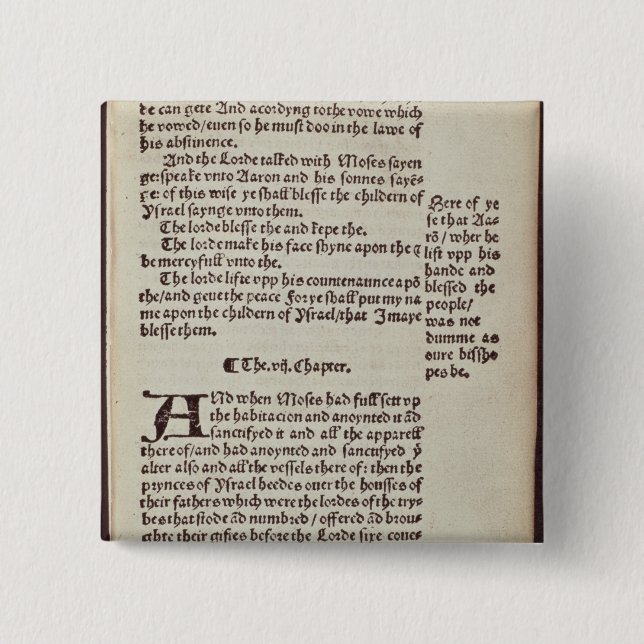 de can gete And acordyng to the vowe which
he vowed/euen so he must doo in the lawe of
his abstinence.
And the Lorde talked with Moses sayen
ge: speake vnto Aaron and his sonnes sayē-
ge: of this wise ye shall blesse the childern of
Ysrael saynge vnto them.
The lorde blesse the and kepe the.
The lorde make his face shyne apon the &
be mercyfull vnto the.
The lorde lifte vpp his countenaunce apō
the/and geue the peace For ye shall put my na
me apon the childern of Ysrael/that I maye
blesse them.
Here of ye
se that Aa-
rō/wher he
lift vpp his
hande and
blessed the
people/
was not
dumme as
oure bissho
pes be.
¶ The.vij.Chapter.
ANd when Moses had full sett vp
the habitacion and anoynted it ād
sanctifyed it and all the apparell
there of/and had anoynted and sanctifyed ẏ
alter also and all the vessels there of: then the
prynces of Ysrael heedes ouer the housses of
their fathers which were the lordes of the try-
bes that stode ād numbred/offered ād brou-
ghte their giftes before the Lorde sixe couer-